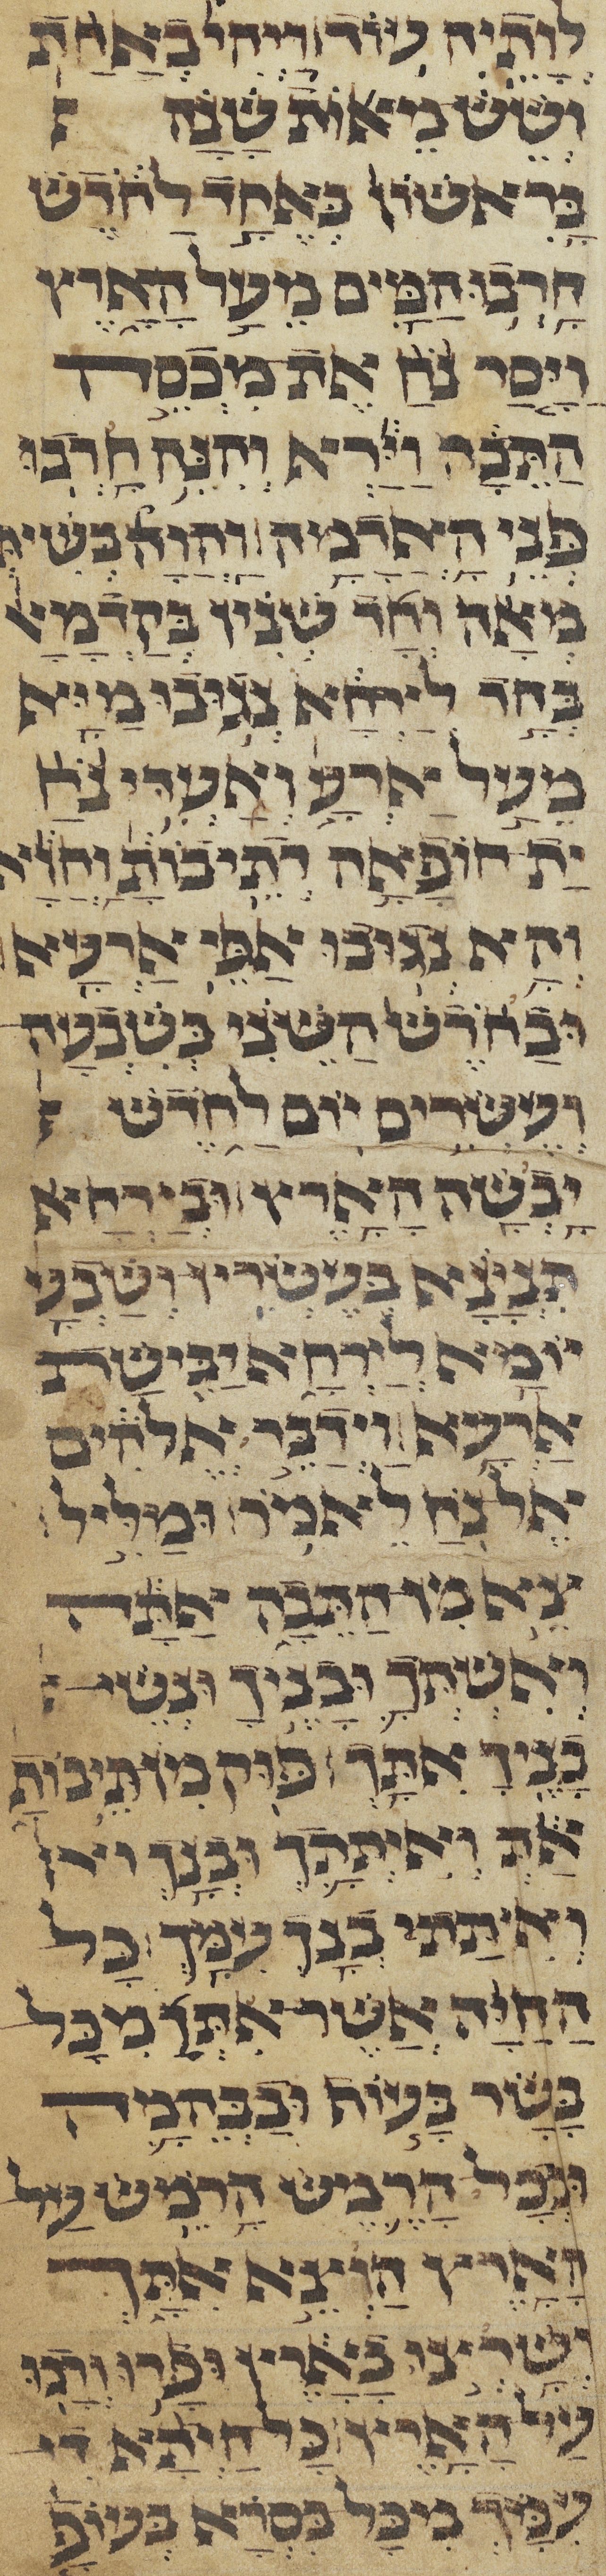 לותיה עוד ויהי באחת
ושש מאות שנה
בראשון באחד לחדש
חרבו המים מעל הארץ
ויסר נח את מכסה
התבה וירא והנה חרבו
פני האדמה והוה בשית
מאה וחד שנין בקדמא
בחד לירחא נגובו מיא
מעל ארע ואעדי נח
ית חופאה דתיבות וחזא
והא נגובו אפי ארעא
ובחדש השני בשבעה
ועשרים יום לחדש
יבשה הארץ ובירחא
תנינא בעשרין ושבע
יומא לירחא יבישת
ארעא וידבר אלהים
אל נח לאמר ומליל
צא מן התבה אתה
ואשתך ובניך ונשי
בניך אתך פוק מן תיבות
את ואיתתך ובנך
ואיתתי בנך עמך כל
החיה אשר אתך מכל
בשר בעוף ובבהמה
ובכל הרמש הרמש על
הארץ הוצא אתך
ושרצו בארץ ופרו ורבו
על הארץ כל חיתא די
עמך מכל בסרא בעופ